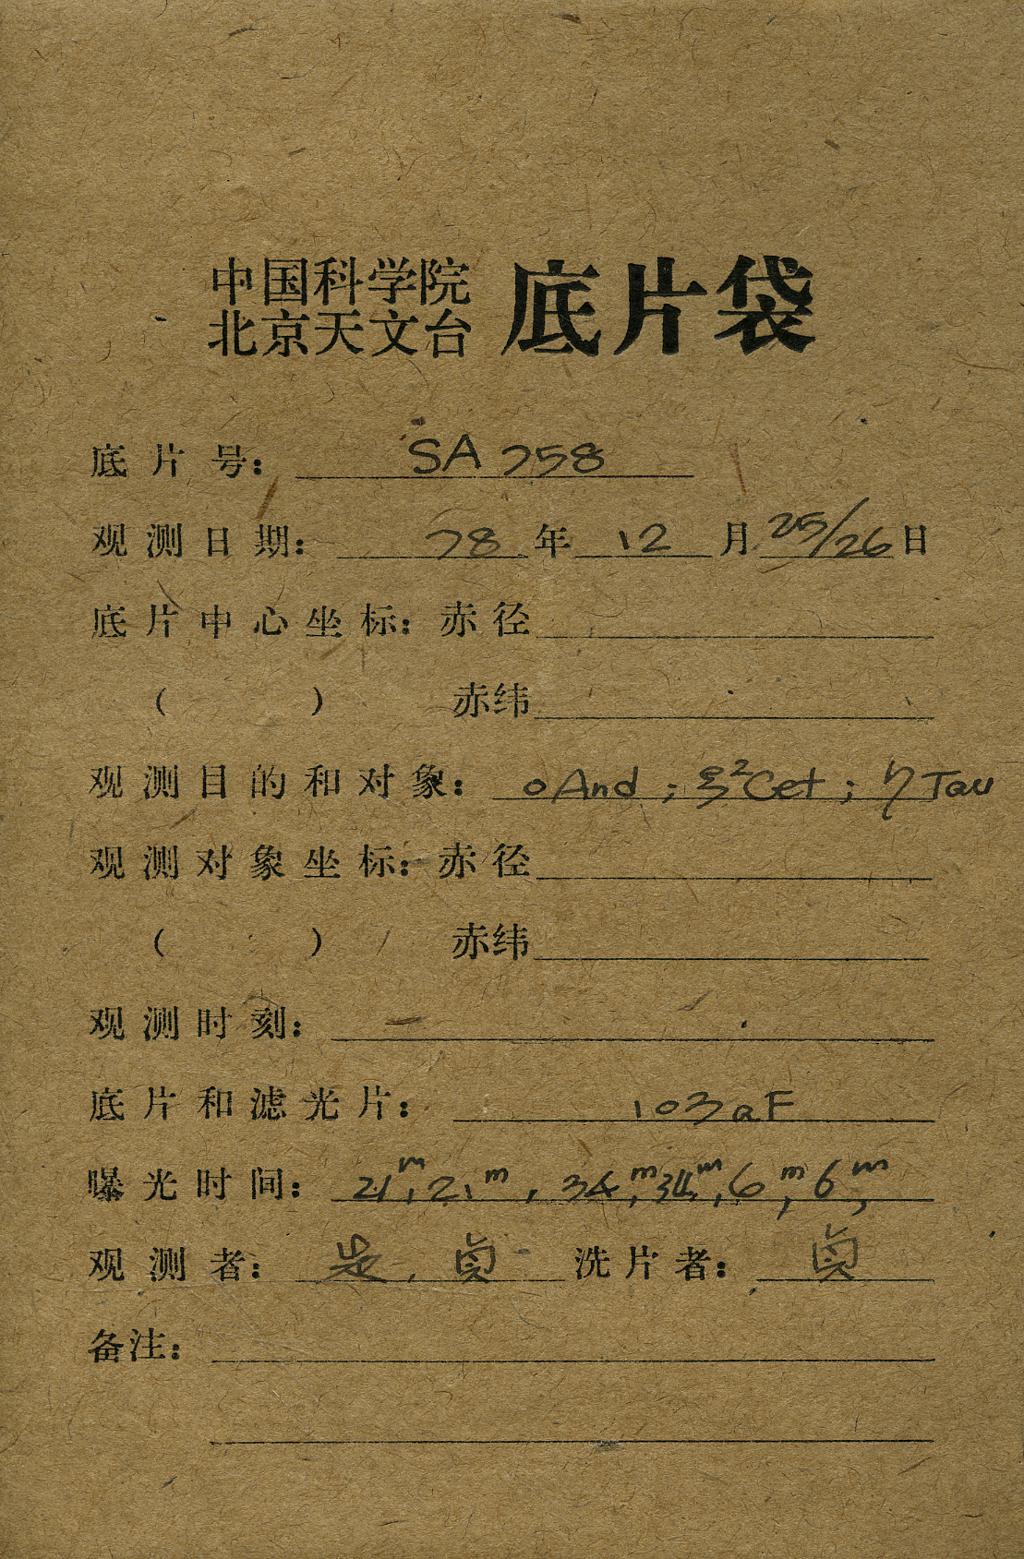 中国科学院
北京天文台 底片袋
底片号： SA 758
观测日期： 78 年 12 月 25/26 日
底片中心坐标：赤径
（ ） 赤纬
观测目的和对象： oAnd ; ξ²Cet ; η Tau
观测对象坐标：赤径
（ ） 赤纬
观测时刻：
底片和滤光片： 103aF
曝光时间： 21ᵐ, 21ᵐ, 34ᵐ, 34ᵐ, 6ᵐ, 6ᵐ,
观测者： 贞 洗片者： 贞
备注：